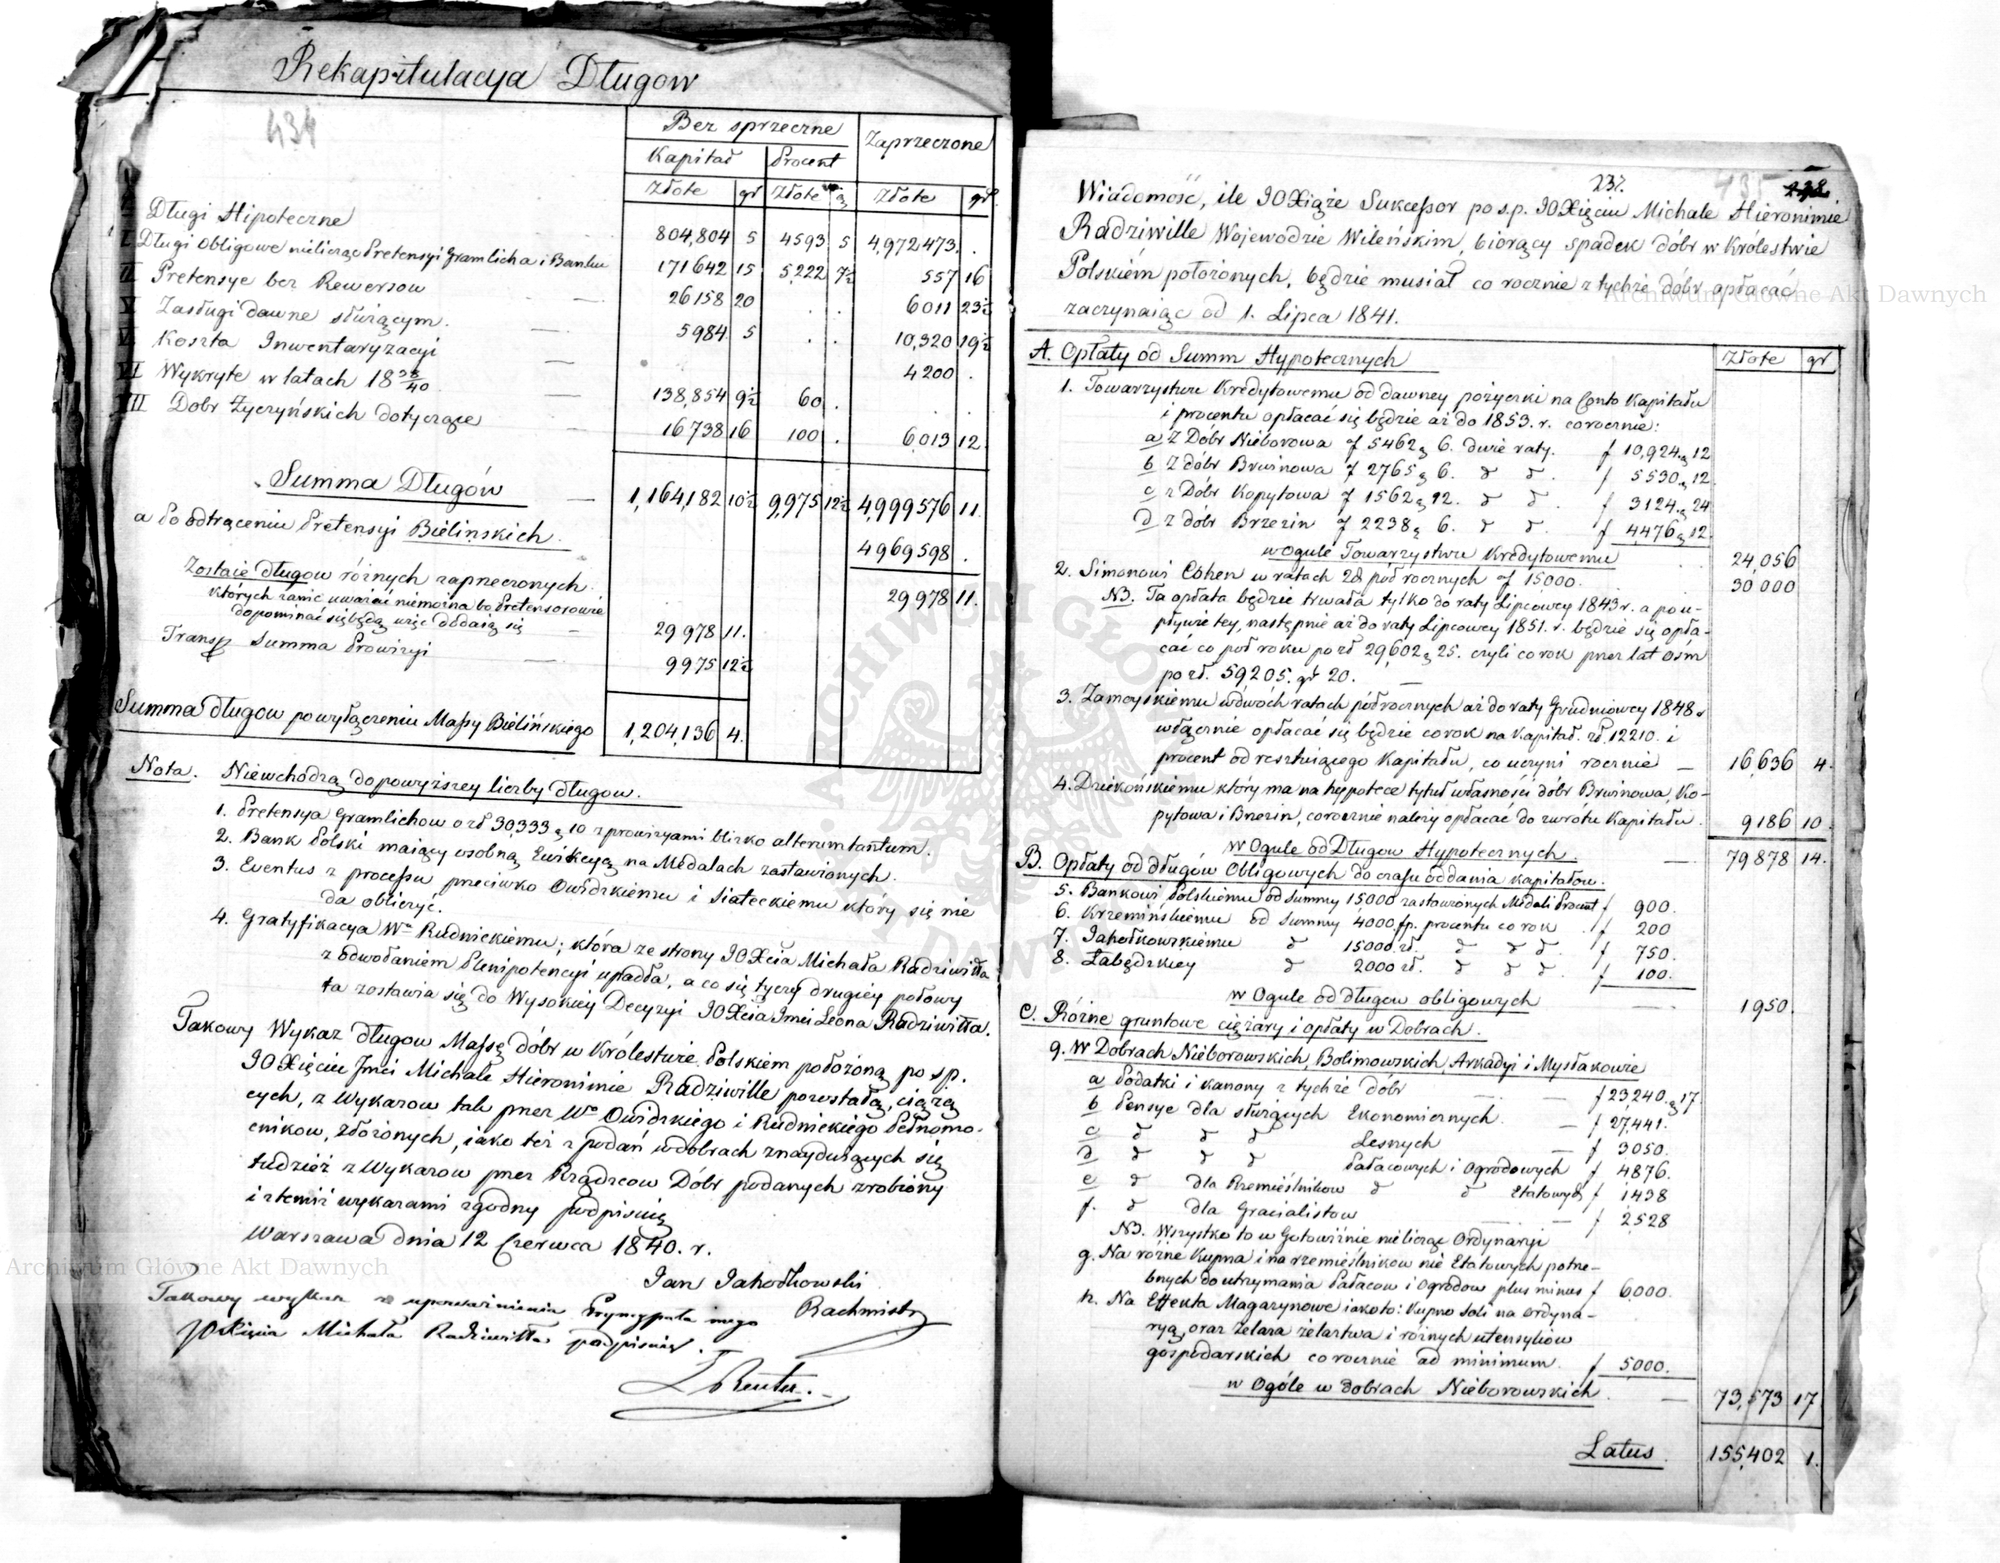 Rekapitulacya Długow
434
Bez sprzeczne
Zaprzeczone
Kapitał Procent
Złote gr Złote g Złote gr
Długi Hipoteczne 804,804 5 4593 5 4,972473. .
Długi obligowe nielicząc Pretensyi Gramlicha i Banku 171642 15 5,222 7½ 557 16
Pretensye bez Rewersow — 26158 20 . . 6011 23½
V Zasługi dawne służącym. — 5984 5 . . 10,320 19½
Koszta Inwentaryzacyi — . . 4200 .
VI Wykryte w latach 18 38/40 138,854 9½ 60 . . .
VII Dobr Życzyńskich dotyczące — 16738 16 100 . 6013 12.
Summa Długów — 1,164,182 10½ 9,975 12½ 4,999576 11.
a po odtrąceniu Pretensyi Bielinskich. 4969598 .
Zostaie długow róźnych zaprzeczonych. 29978 11.
których zanic uwaźać niemoźna bo Pretensorowie
dopominać się będą więc dodaią się — 29978 11.
Transp Summa Prowizyi — 9975 12½
Summa długow powyłączeniu Massy Bielińskiego 1,204,136 4.
Nota. Niewchodzą do powyźszey liczby długow.
1. Pretensya Gramlichow o zł 30,333 g 10 z prowizyami blizko alterum tantum.
2. Bank Polski maiący osobną Ewikcyą na Medalach zastawionych.
3. Eventus z processu przeciwko Owidzkiemu i Siateckiemu który się nie
da obliczyć.
4. Gratyfikacya Wu Rudnickiemu; która ze strony JOXcia Michała Radziwiłła
z odwołaniem Plenipotencyi upadła, a co się tyczy drugiey połowy
ta zostawia się do Wysokiey Decyzyi JOXcia Jmci Leona Radziwiłła.
Takowy Wykaz długow Massę dóbr w Królestwie Polskiem połoźoną po ś.p.
JOXięciu Jmci Michale Hieronimie Radziwille pozostałą, ciąźą
cych, z Wykazow tak przez Wo Owidzkiego i Rudnickiego Pełnomo-
cnikow, złoźonych, iako teź z podań w dobrach znayduiących się
tudzieź z Wykazow przez Rządzcow Dóbr podanych zrobiony
i z temiź wykazami zgodny podpisuię
Warszawa dnia 12 Czerwca 1840. r.
Jan Jahołkowski
Rachmistrz
Takowy wykaz z upoważnienia Pryncypała mego
JOXięcia Michała Radziwiłła podpisuię.
237.
435
Wiadomość, ile JOXiąźe Sukcessor po ś.p. JOXięciu Michale Hieronimie
Radziwille Wojewodzie Wileńskim, biorący spadek dóbr w Królestwie
Polskiém połoźonych, będzie musiał co rocznie z tychźe dóbr opłacać
zaczynaiąc od 1. Lipca 1841.
A. Opłaty od Summ Hypotecznych Złote gr
1. Towarzystwu Kredytowemu od dawney poźyczki na Conto Kapitału
i procentu opłacać się będzie aź do 1853. r. corocznie:
a z Dóbr Nieborowa f 5462 g 6. dwie raty. f 10,924. g 12
b z dóbr Brwinowa f 2765 g 6. d d . f 5530 g 12.
c z Dóbr Kopytowa f 1562 g 12. d d . f 3124. g 24
d z dóbr Brzezin f 2238 g 6. d d . f 4,476 g 12.
w Ogule Towarzystwu Kredytowemu . . 24,056
2. Simonowi Cohen w ratach 2ch półrocznych f 15000. 30 000
NB. Ta opłata będzie trwała tylko do raty Lipcowey 1843 r. a po u-
pływie tey, następnie aź do raty Lipcowey 1851. r. będzie się opła-
cać co pół roku po zł 29,602 g 25. czyli co rok przez lat ośm
po zł. 59205. gr 20. —
3. Zamoyskiemu w dwóch ratach półrocznych aź do raty Grudniowey 1848 r
włącznie opłacać się będzie co rok na Kapitał. zł. 12210. i
procent od resztuiącego Kapitału, co uczyni rocznie — 16,636 4.
4. Dziekońskiemu który ma na hypotece tytuł własności dóbr Brwinowa, Ko-
pytowa i Brzezin, corocznie naleźy opłacać do zwrótu Kapitału. 9186 10.
w Ogule od Długow Hypotecznych. — 79878 14.
B. Opłaty od długów Obligowych do czasu oddania Kapitałow.
5. Bankowi Polskiemu od Summy 15,000 zastawionych Medali Procent f 900.
6. Krzemińskiemu od Summy 4000 fp. procentu co rok . f 200
7. Jahołkowskiemu d 15000 zł. d d d . f 750.
8. Łabędzkiey d 2000 zł. d d d . f 100.
w Ogule od długow obligowych — 1950.
C. Róźne gruntowe cięźary i opłaty w Dobrach.
9. w Dobrach Nieborowskich, Bolimowskich Arkadyi i Mysłakowie
a Podatki i kanony z tychźe dóbr — — f 23240. g 17.
b Pensye dla słuźących Ekonomicznych. — f 27,441.
c d d d Lesnych — f 3050.
d d d d Pałacowych i Ogrodowych f 4876.
e d dla Rzemieślnikow d d Etatowych f 1438
f. d dla Gracialistow — — f 2,528
NB. Wszystko to w Gotowiźnie nielicząc Ordynaryi
g. Na róźne Kupna i na rzemieślnikow nie Etatowych potrze-
bnych do utrzymania Pałacow i Ogrodow plus minus f 6,000.
h. Na Effekta Magazynowe iako to: Kupno soli na Ordyna-
ryą, oraz źelaza źelaztwa i róźnych utensyliów
gospodarskich corocznie ad minimum. f 5000.
w Ogóle w dobrach Nieborowskich. — 73,573 17
Latus. 155,402 1.
Archiwum Główne Akt Dawnych
Archiwum Główne Akt Dawnych